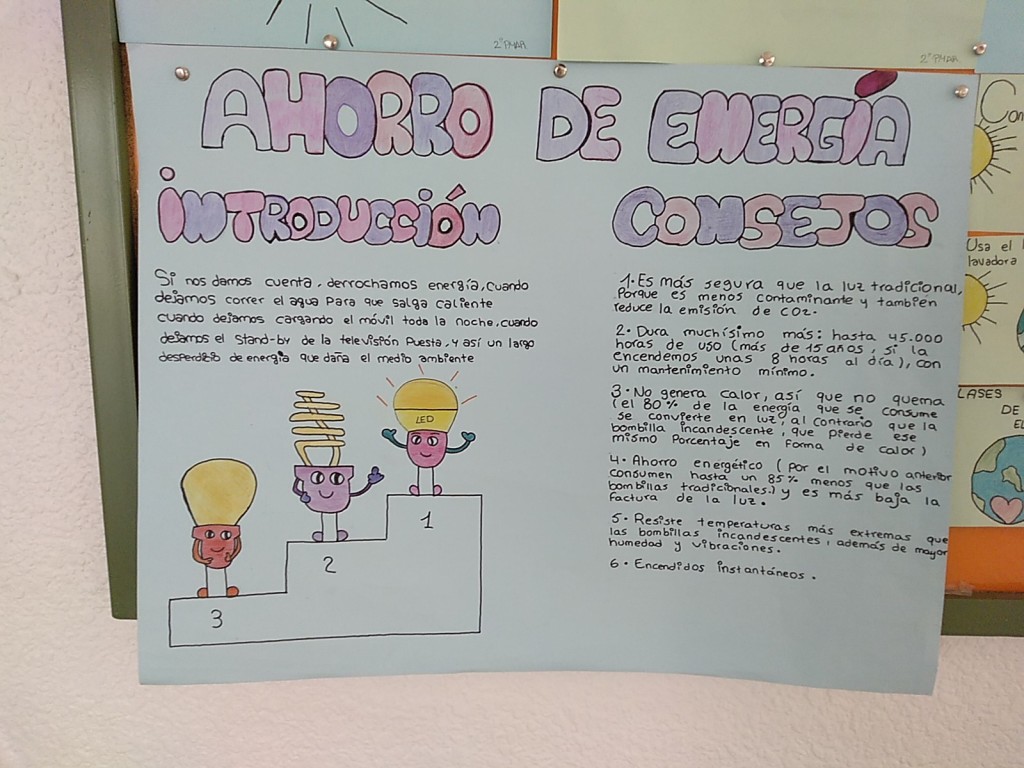 2º PMAR
2º PMAR
AHORRO DE ENERGÍA
INTRODUCCIÓN
Si nos damos cuenta, derrochamos energía, cuando
dejamos correr el agua para que salga caliente
cuando dejamos cargando el móvil toda la noche, cuando
dejamos el stand-by de la televisión puesta, y así un largo
desperdicio de energia que daña el medio ambiente
LED
1
2
3
CONSEJOS
1. Es más segura que la luz tradicional,
porque es menos contaminante y también
reduce la emisión de CO2.
2. Dura muchísimo más: hasta 45.000
horas de uso (más de 15 años, si la
encendemos unas 8 horas al día), con
un mantenimiento mínimo.
3. No genera calor, así que no quema
(el 80% de la energía que se consume
se convierte en luz, al contrario que la
bombilla incandescente, que pierde ese
mismo porcentaje en forma de calor)
4. Ahorro energético (por el motivo anterior
consumen hasta un 85% menos que las
bombillas tradicionales.) y es más baja la
factura de la luz.
5. Resiste temperaturas más extremas que
las bombillas incandescentes, además de mayor
humedad y vibraciones.
6. Encendidos instantáneos.
Con
Usa el
lavadora
CLASES
DE
EL